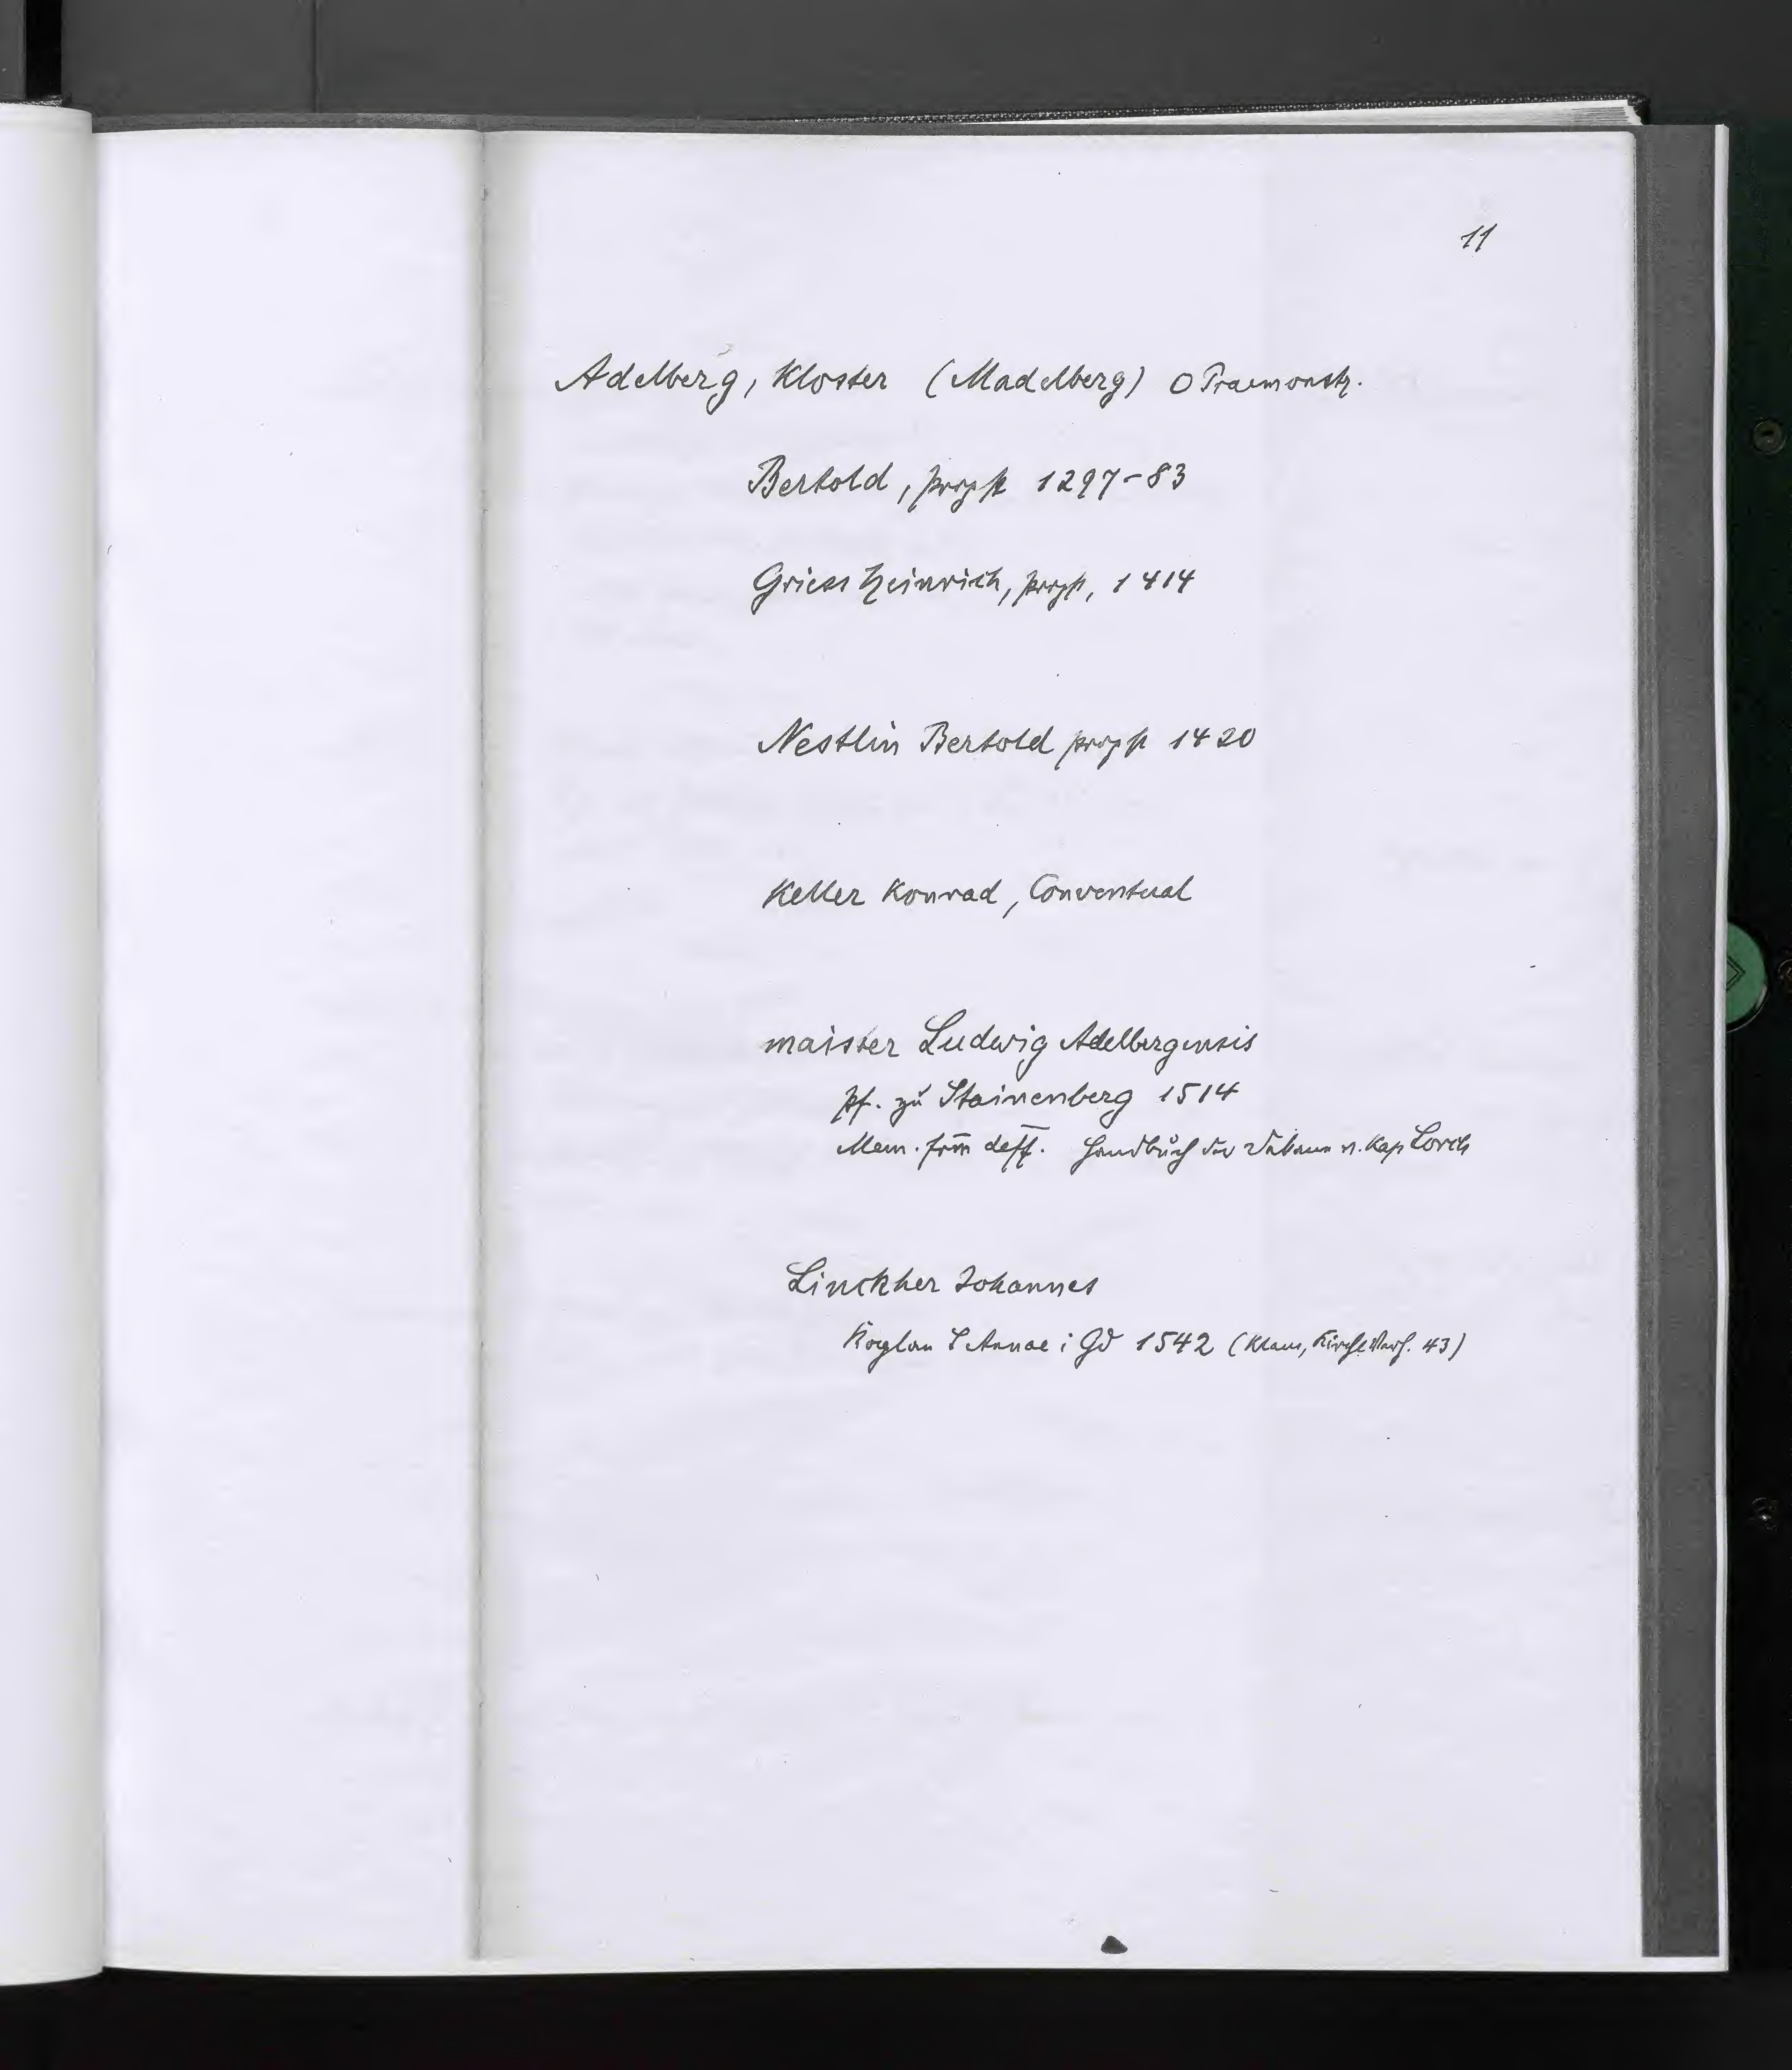 11
Adelberg, Kloster (Madelberg) O Praemonstr.
Bertold, propst 1297-83
Griess Heinrich, propst, 1414
Nestlin Bertold propst 1420
Keller Konrad, Conventual
maister Ludwig Adelbergensis
Pf. zu Stainenberg 1514
Mem. frm deff. Handbuch der Dekane v. Kap Lorch
Linckher Johannes
Kaplan S Annae i Gd 1542 (Klaus, Kirche 43)